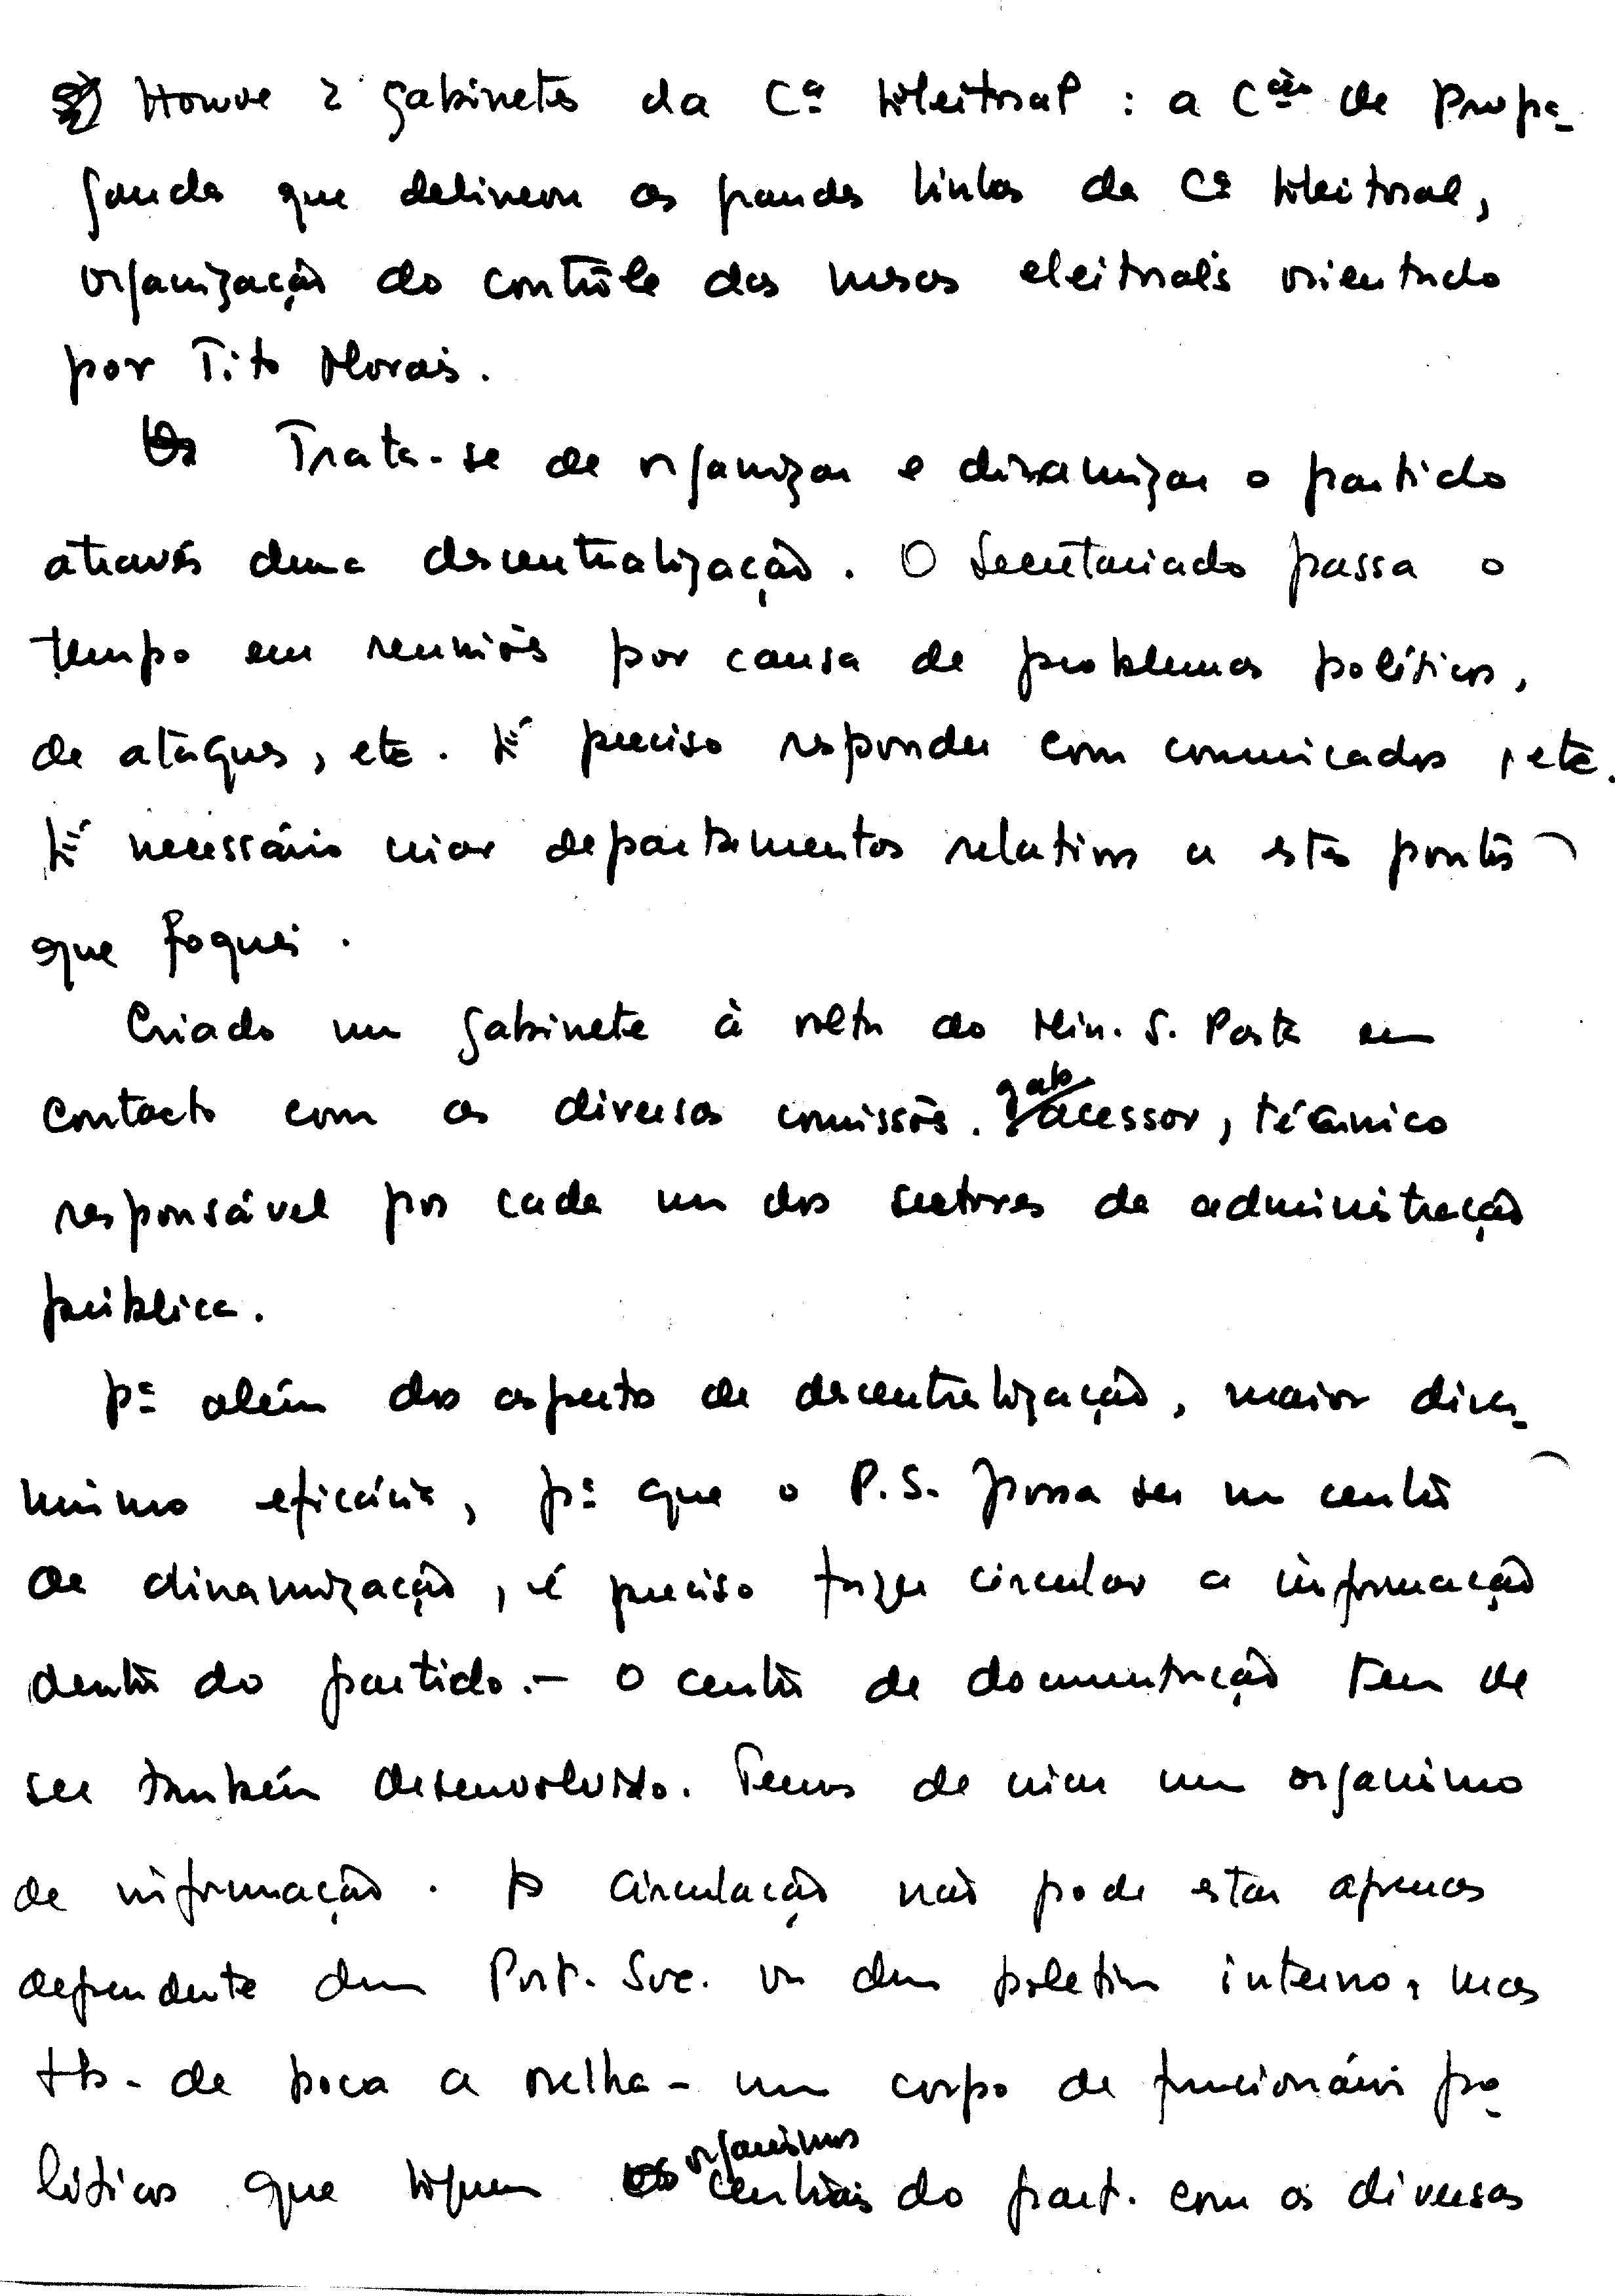 Houve 2 gabinetes da Cª Eleitoral : a Cção de Propa-
ganda que delineou as grandes linhas da Cª Eleitoral,
organização do contrôle das mesas eleitorais orientado
por Tito Morais.
Trata-se de organizar e dinamizar o partido
através duma descentralização. O Secretariado passa o
tempo em reuniões por causa de problemas políticos,
de ataques, etc. É preciso responder com comunicados, etc.
É necessário criar departamentos relativos a estes pontos
que foquei.
Criado um gabinete à volta do Min. S. Porta em
contacto com as diversas comissões. gab. acessor, técnico
responsável por cada um dos sectores da administração
pública.
Pª além dos aspectos de descentralização, maior dina-
mismo eficácia, pª que o P.S. possa ser um centro
de dinamização, é preciso fazer circular a informação
dentro do partido. - O centro de documentação tem de
ser também desenvolvido. Temos de criar um organismo
de informação. A circulação não pode estar apenas
dependente dum Port. Soc. ou dum boletim interno, mas
tb - de boca a orelha - um corpo de funcionários po-
líticos que liguem organismos centrais do part. com os diversos